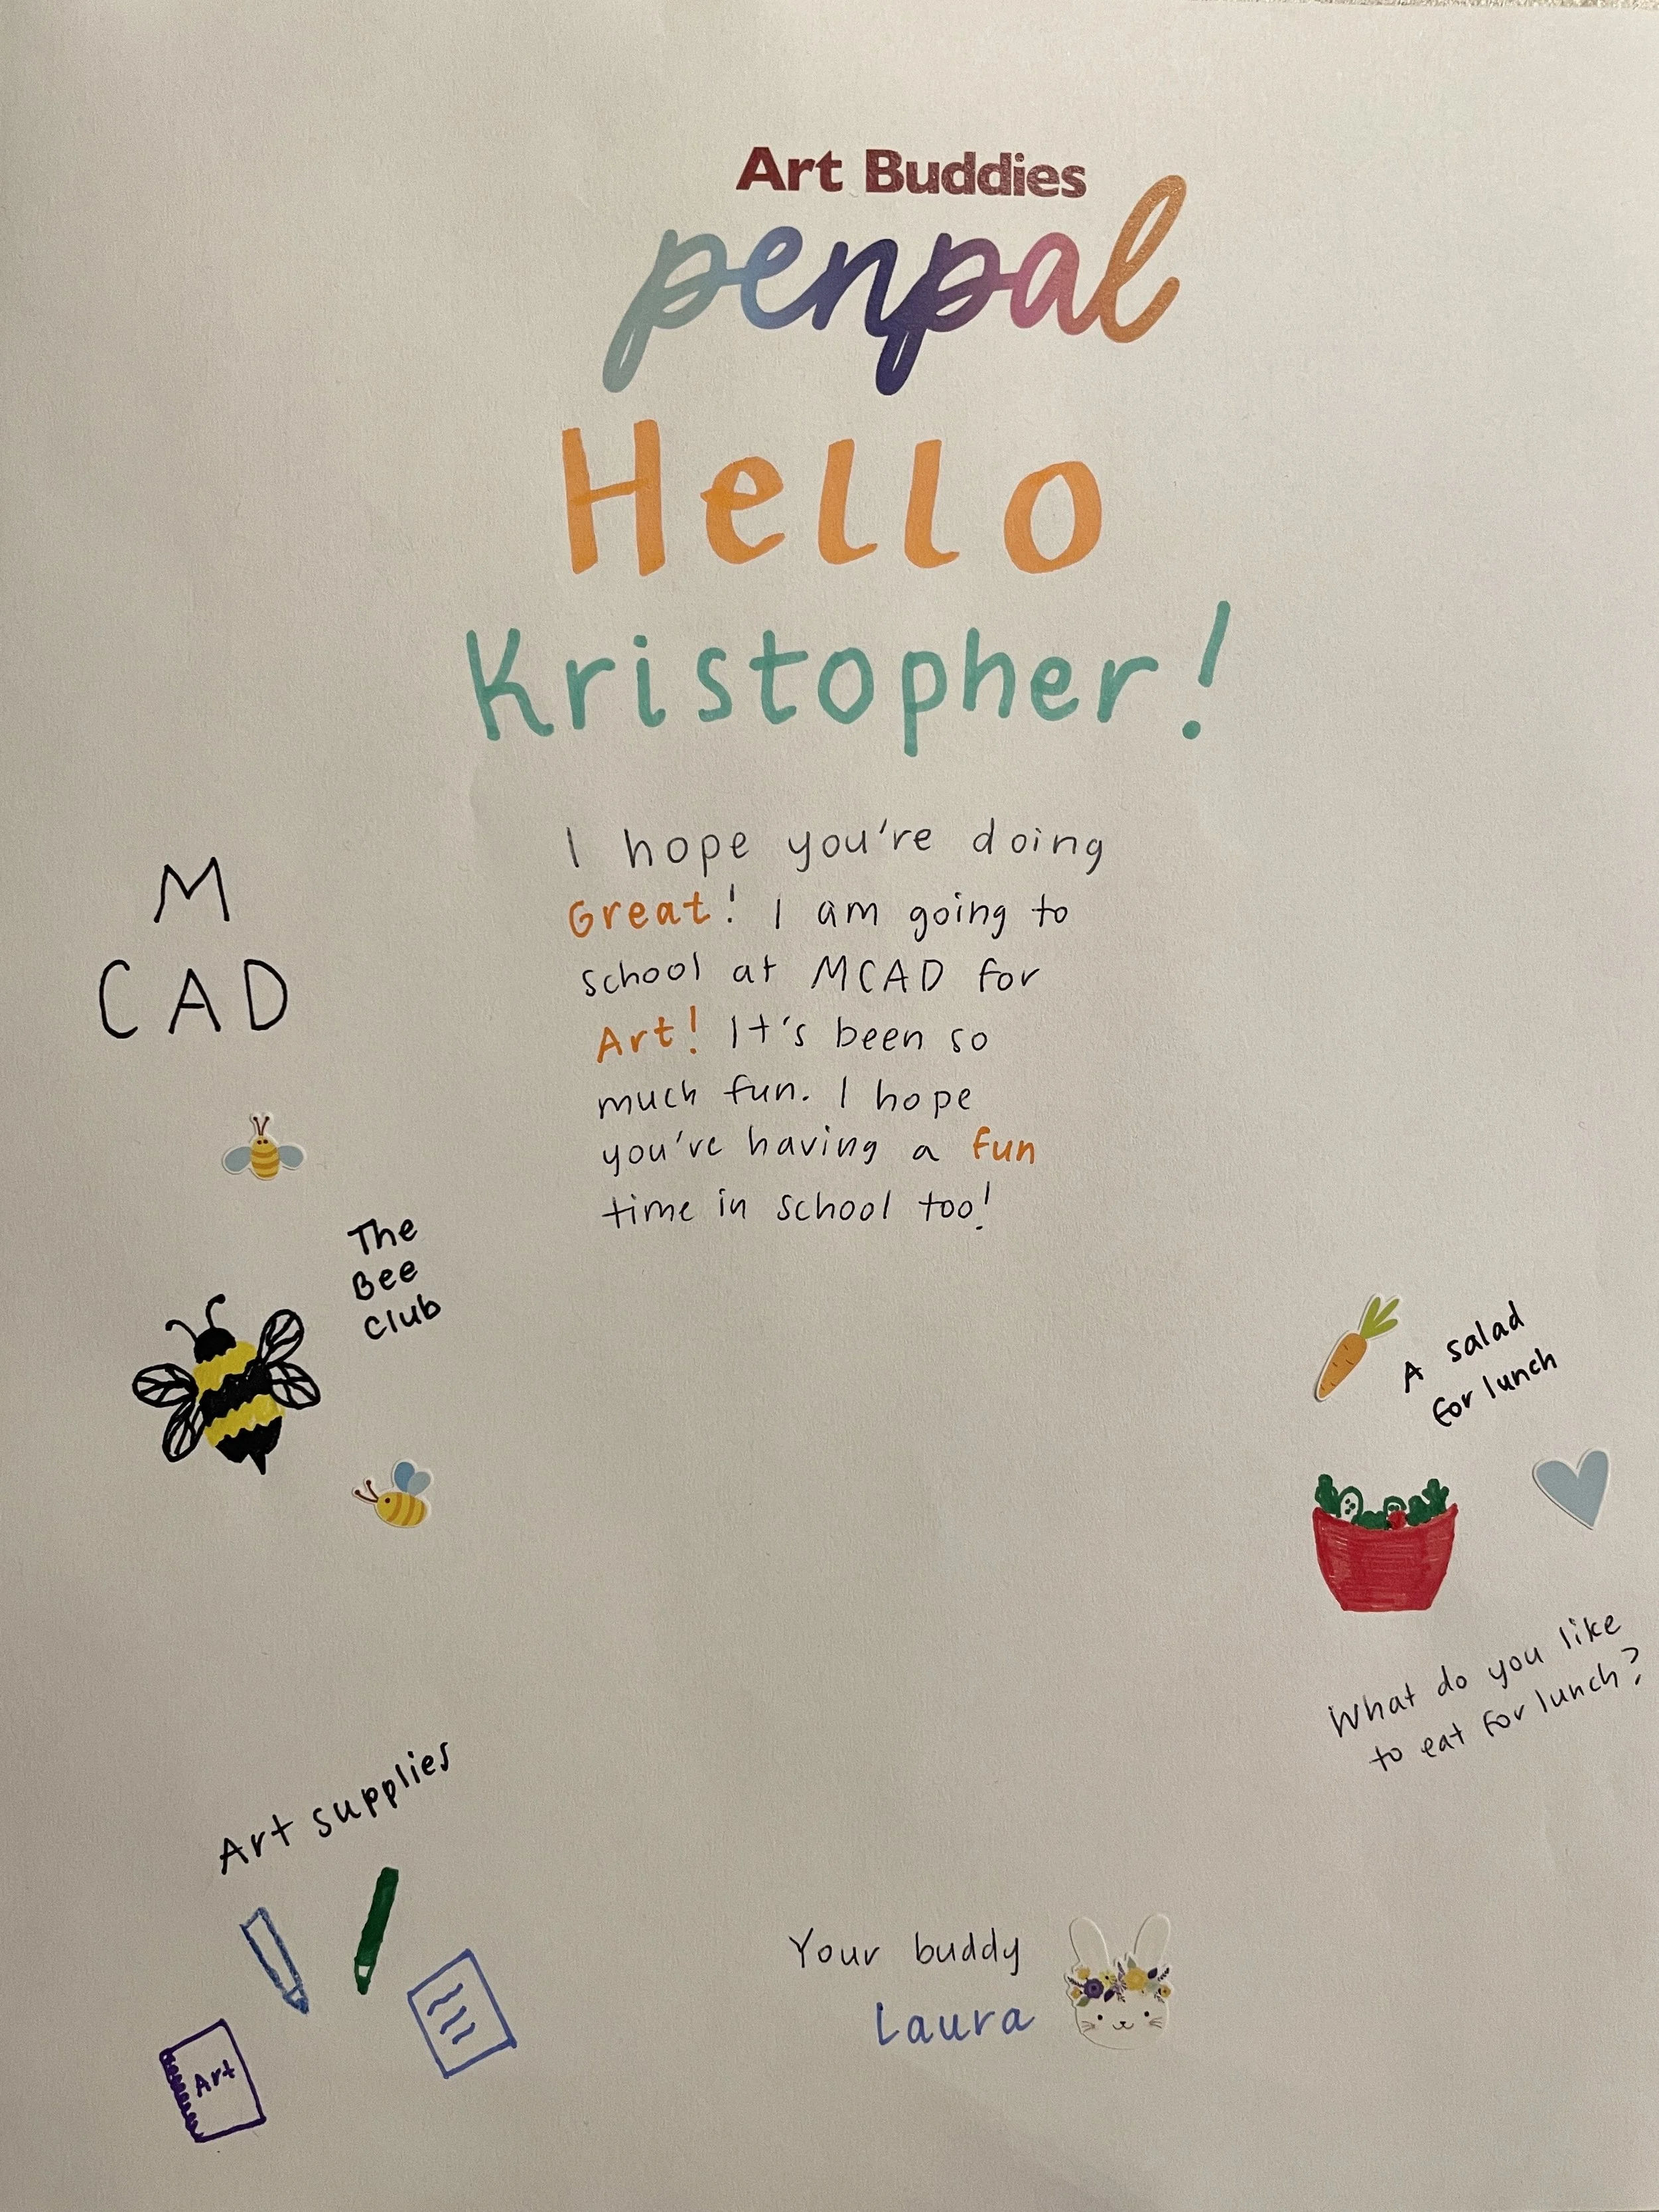 Art Buddies
penpal
Hello
Kristopher!
I hope you're doing
Great! I am going to
school at MCAD for
Art! It's been so
much fun. I hope
you're having a fun
time in school too!
M
CAD
The
Bee
Club
A salad
for lunch
What do you like
to eat for lunch?
Art supplies
Art
Your buddy
Laura